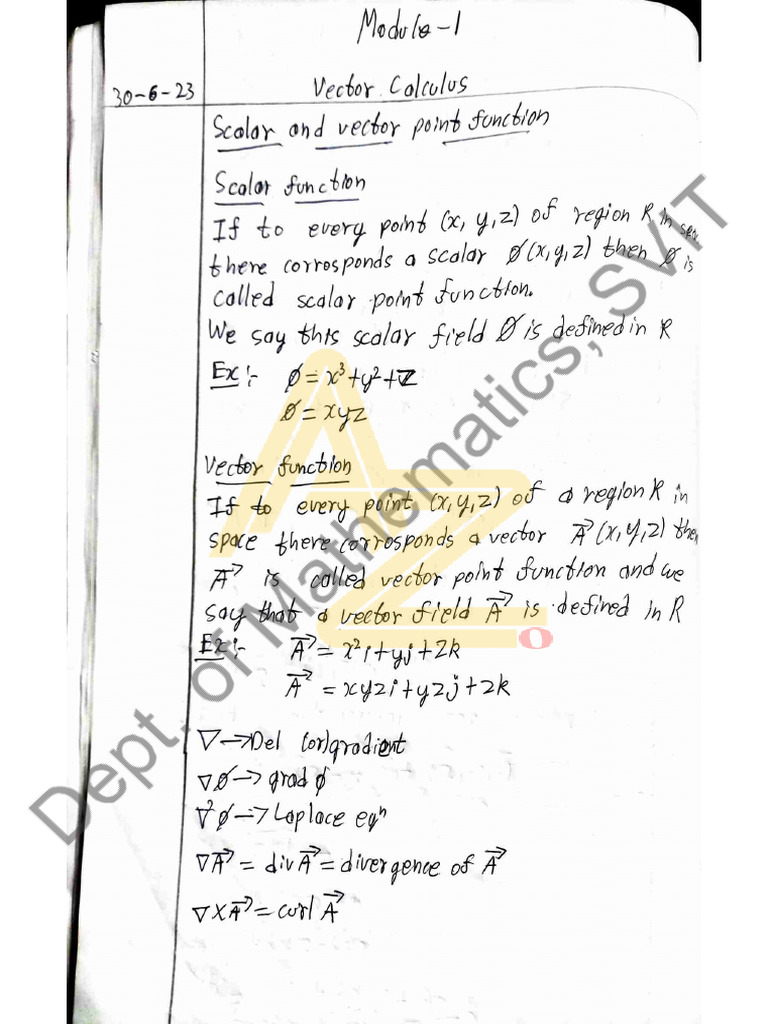 Module-1
30-6-23
Vector Calculus
Scalar and vector point function
Scalar function
If to every point (x, y, z) of region R in
there corrosponds a scalar ∅(x,y,z) then ∅ is
called scalar point function.
We say this scalar field ∅ is defined in R
Ex:- ∅ = x³+y²+z
∅ = xyz
Vector function
If to every point (x,y,z) of a region R in
space there corrosponds a vector A⃗ (x,y,z) then
A⃗ is called vector point function and we
say that a vector field A⃗ is defined in R
Ex:- A⃗ = x²i+yj+zk
A⃗ = xyzi+yzj+zk
∇→Del (or)gradient
∇∅→grad ∅
∇²∅→Laplace eqⁿ
∇A⃗ = divA⃗ = divergence of A⃗
∇×A⃗ = curl A⃗
Dept. of Mathematics, SVIT